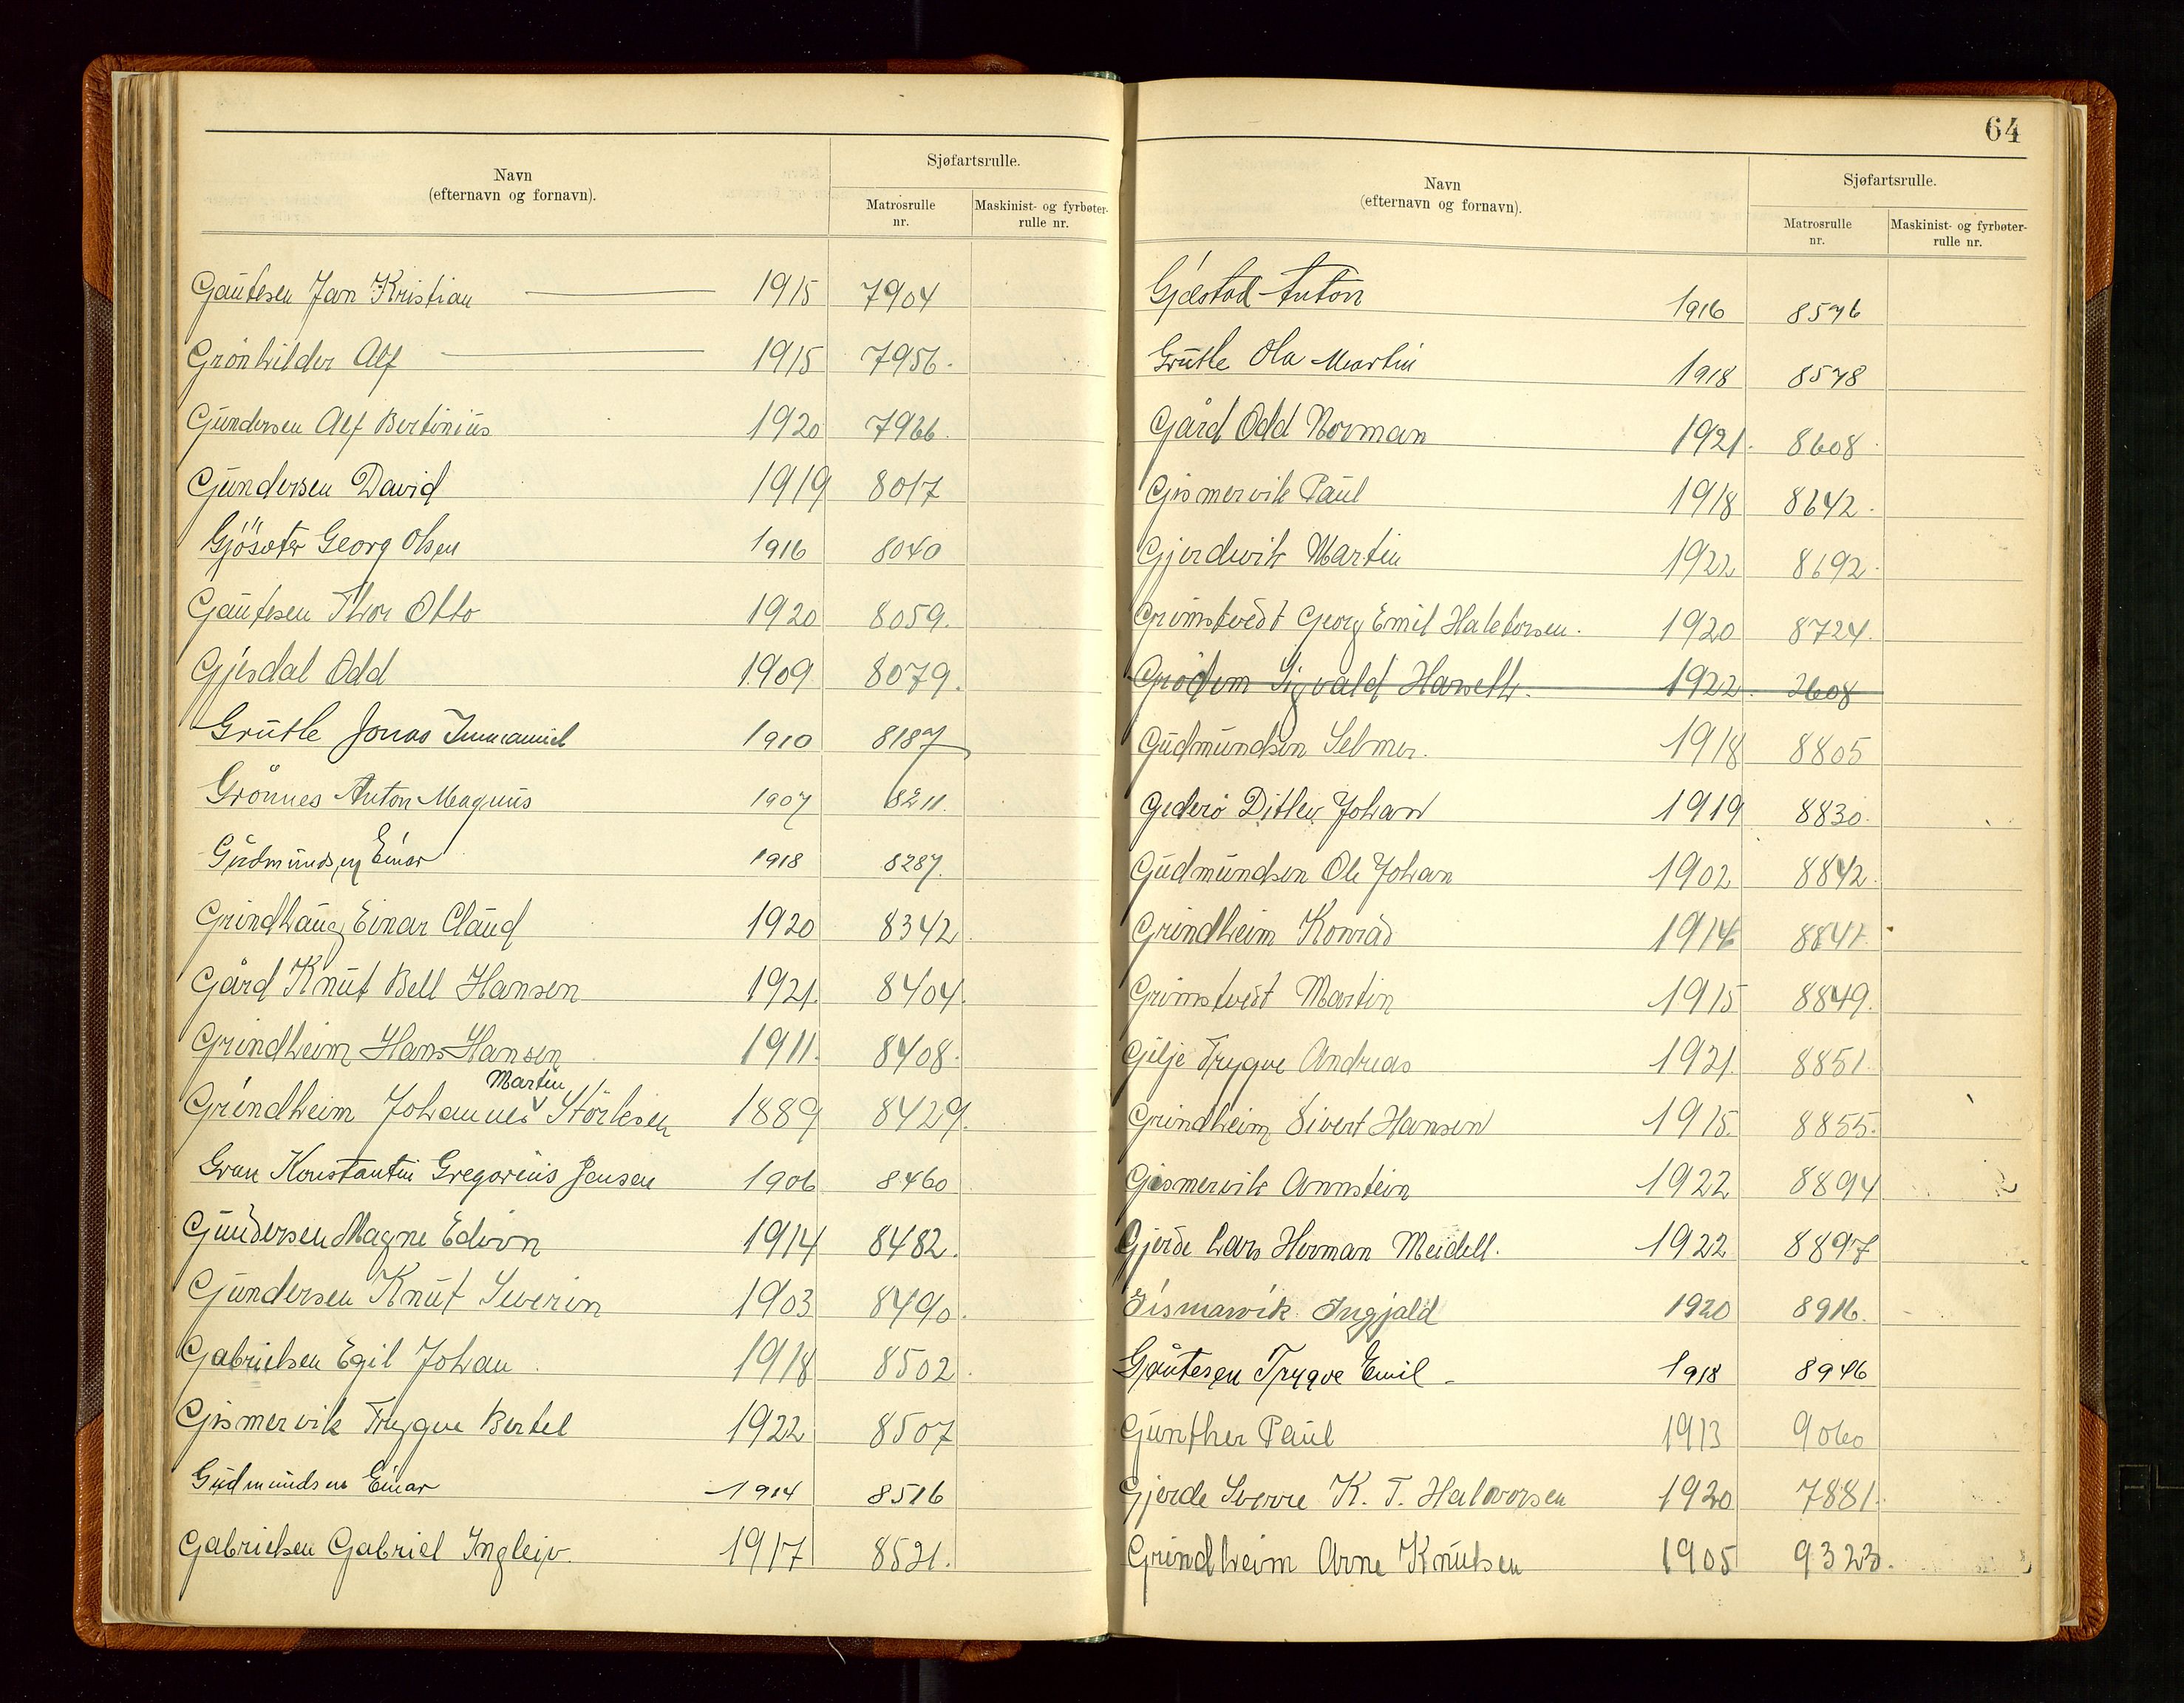 Navn
(efternavn og fornavn).
Sjøfartsrulle.
Matrosrulle
nr.
Maskinist- og fyrbøter-
rulle nr.
Gautesen Jan Kristian 1915 7904
Grönhilder Alf 1915 7956.
Gundersen Alf Bertinius 1920 7966.
Gundersen David 1919 8017
Gjösæter Georg Olsen 1916 8040
Gautesen Thor Otto 1920 8059.
Gjesdal Odd 1909 8079.
Grutle Jonas Immanuel 1910 8187
Grönnes Anton Magnus 1907 8211.
Gudmundsen Einar 1918 8287.
Grindhaug Einar Claud 1920 8342
Gård Knut Bell Hansen 1921. 8404.
Grindheim Hans Hansen 1911. 8408.
Martin
Grindheim Johannes Störksen 1889 8429.
Gran Konstantin Gregorius Jensen 1906 8460
Gundersen Magne Edvin 1914 8482.
Gundersen Knut Severin 1903 8490.
Gabrielsen Egil Johan. 1918 8502.
Gismervik Trygve Bertel 1922 8507
Gudmundsen Einar 1914 8516
Gabrielsen Gabriel Ingleiv. 1917 8521.
64
Navn
(efternavn og fornavn).
Sjøfartsrulle.
Matrosrulle
nr.
Maskinist- og fyrbøter-
rulle nr.
Gjæstad Anton 1916 8576
Grutle Ola Martin 1918 8578
Gård Odd Norman 1921. 8608.
Gismervik Paul 1918 8642.
Gjerdevik Martin 1922 8692.
Grimstvedt Georg Emil Halvorsen. 1920 8724.
Grödem Sigvald 1922. 2608
Gudmundsen Selmer. 1918 8805
Gederö Ditlev Johan 1919 8830.
Gudmundsen Ole Johan 1902 8842.
Grindheim Konrad 1914 8841.
Grimstvedt Martin 1915 8849.
Gilje Trygve Andreas 1921. 8851
Grindheim Sivert Hansen 1915. 8855.
Gismervik Annstein 1922 8894
Gjerde Lars Herman Meidell. 1922 8897
Gismarvik Ingjald 1920 8916.
Gautesen Trygve Emil 1918 8946
Gunther Paul 1913 9060
Gjerde Sverre K. T. Halvorsen 1920 7881.
Grindheim Arne Knutsen 1905 9323.